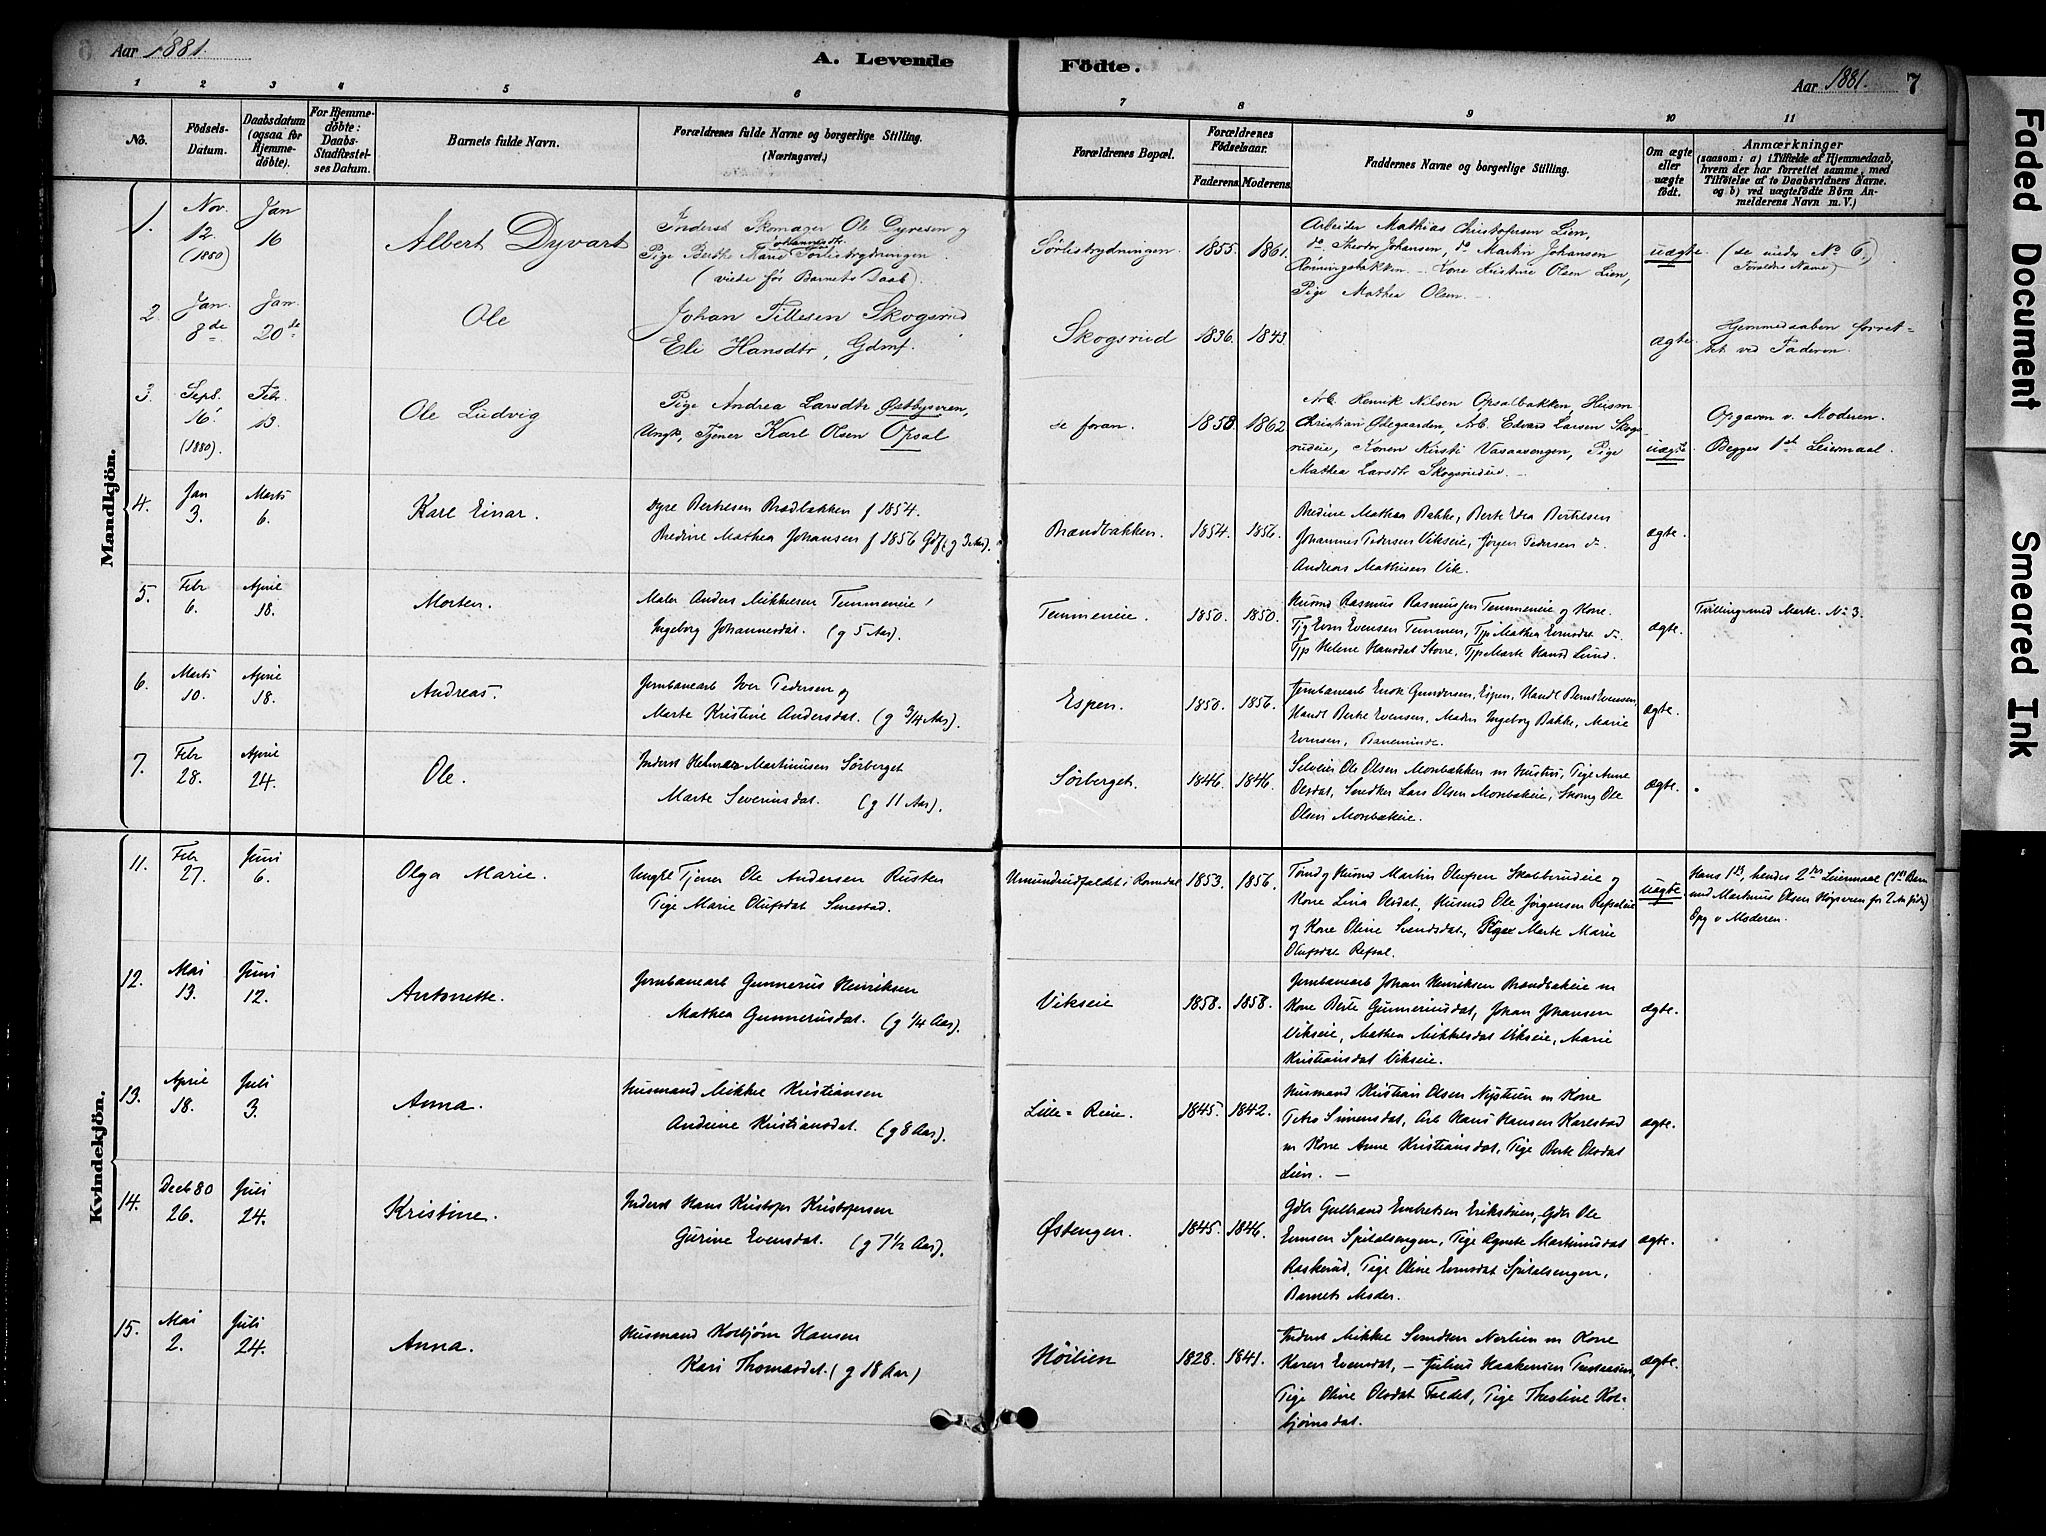 6 Aar 1881. A. Levende Födte. Aar 1881. 7
1 2 3 4 5 6 7 8 9 10 11
No.
Födsels-
Datum.
Daabsdatum
(ogsaa for
Hjemme-
döbte).
For Hjemme-
döbte:
Daabs-
Stadfæstel-
ses Datum.
Barnets fulde Navn.
Forældrenes fulde Navne og borgerlige Stilling.
(Næringsvei.)
Forældrenes Bopæl.
Forældrenes
Födselsaar.
Faderens. Moderens.
Faddernes Navne og borgerlige Stilling.
Om ægte
eller
uægte
födt.
Anmærkninger
(saasom: a) i Tilfælde af Hjemmedaab,
hvem der har forrettet samme, med
Tilföielse af to Daabsvidners Navne.
og b) ved uægtefödte Börn An-
melderens Navn m. V.)
Mandkjön.
1.
Nov.
12.
(1880)
Jan
16
Albert Dyvart
Inderst Skomager Ole Dyresen og
Johannesdtr.
Pige Berthe Marie Sørlistrydningen.
(viede før Barnets Daab).
Sørlistrydningen.
1855. 1861.
Arbeider Mathias Christofersen Lien,
do Theodor Johansen, do Martin Johansen
Rønningsbakken. - Kone Kristine Olsen Lien,
Pige Mathea Olsen. -
uægte.
(se under No 6.
Forældres Navne)
2.
Jan.
8de
Jan.
20de
Ole
Johan Tillesen Skogsrud
Eli Hansdtr, Gdmf.
Skogsrud
1836. 1843.
ægte.
Hjemmedaaben forret-
tet ved Faderen.
3.
Sept.
16.
(1880).
Febr.
13.
Ole Ludvig
Pige Andrea Larsdtr Østbysveen,
Ungk, Tjener Karl Olsen Opsal
se foran.
1858. 1862
Arb. Henrik Nilsen Opsalbakken, Husm
Christian Ødegaarden, Arb. Edvard Larsen Skogs-
rudeie, Konen Kirsti Vasaavengen, Pige
Mathea Larsdtr Skogsrudeie. -
uægte.
Opgaven v. Moderen.
Begges 1ste Leiermaal.
4.
Jan
3.
Marts
6.
Karl Einar.
Dyre Bertelsen Brædbakken f 1854.
Bredine Mathea Johansen f 1856 Gdf (g 3 Aar).
Brændbakken.
1854. 1856.
Bredine Mathea Bakke, Berte Bertelsen
Johannes Pedersen Vikseie, Jørgen Pedersen do.
Andreas Mathisen Vik.
ægte.
5.
Febr
6.
April
18.
Morten.
Maler Anders Mikkelsen Temmeneie
Ingeborg Johannesdat. (g 5 Aar).
Temmeneie.
1850. 1850.
Husmd Rasmus Rasmusen Temmeneie og Kone.
Tjg Even Evensen Temmen, Tjp Mathea Evensdat do.
Tjp Helene Hansdat Storre, Tjp Marte Hansd Lund.
ægte.
Tvilling med Marte. No 3.
6.
Marts
10.
April
18.
Andreas.
Jernbanearb Iver Pedersen og
Marte Kristine Andersdat. (g 3/4 Aar).
Espen.
1850. 1856.
Jernbanearb Enok Gundersen, Espen, Handl Bernt Evensen,
Handl Berte Evensen, Maden Ingeborg Bakke, Marie
Evensen, Baneminde.
ægte.
7.
Febr
28.
April
24.
Ole.
Inderst Helmer Martinusen Sørberget
Marte Severinsdat. (g 11 Aar).
Sørberget.
1846. 1846.
Selveier Ole Olsen Monbækken m Hustru, Pige Anne
Olsdat, Snedker Lars Olsen Monbækeie, Skomg Ole
Olsen Monbækeie.
ægte.
Kvindekjön.
11.
Febr
27.
Juni
6.
Olga Marie.
Ungkl Tjener Ole Andersen Rusten
Pige Marie Olufsdat Smestad.
Amundrudfaldet i Romedal
1853. 1856.
Tømd og Husmd Martin Olufsen Skabberudeie og
Kone Lina Olsdat, Husmd Ole Jørgensen Refsaleie
og Kone Oline Svendsdat, Pige Marte Marie
Olufsdat Refsal.
uægte.
Hans 1ste, hendes 2det Leiermaal (1ste Barn
med Martinus Olsen Høysveen for 2 Aar siden)
Opg v Moderen.
12.
Mai
13.
Juni
12.
Antonette.
Jernbanearb Gunnerus Henriksen
Mathea Gunnerusdat. (g 1/4 Aar).
Vikseie
1858. 1858.
Jernbanearb Johan Henriksen Brændbakeie m
Kone Berte Gunneriusdat, Johan Johansen
Vikseie, Mathea Mikkelsdat Vikseie, Marie
Kristiansdat Vikseie.
ægte.
13.
April
18.
Juli
3.
Anna.
Husmand Mikkel Kristiansen
Andrine Kristiansdat. (g 8 Aar).
Lille = Reeie.
1845. 1842.
Husmand Kristian Olsen Nystuen m Kone
Petra Simensdat, Arb Hans Hansen Karlstad
m Kone Anne Kristiansdat, Pige Berte Olsdat
Lien. -
ægte.
14.
Decb 80
26.
Juli
24.
Kristine.
Inderst Hans Kristofer Kristofersen
Gurine Evensdat. (g 7 1/2 Aar).
Østengen.
1845. 1846.
Gdbr Gulbrand Embretsen Erikstuen, Gdbr Ole
Evensen Spitalsengen, Pige Agnete Martinusdat
Raskerud, Pige Oline Evensdat Spitalsengen,
Barnets Moder.
ægte.
15.
Mai
2.
Juli
24.
Anna.
Husmand Kolbjørn Hansen
Kari Thomasdat. (g 18 Aar)
Höilien
1828. 1841.
Inderst Mikkel Svendsen Norlien m Kone
Karen Evensdat, - Julius Haakensen
Pige Oline Olsdat Faldet, Pige Thrstine Kol-
bjørnsdat.
ægte.
Faded Document Smeared Ink